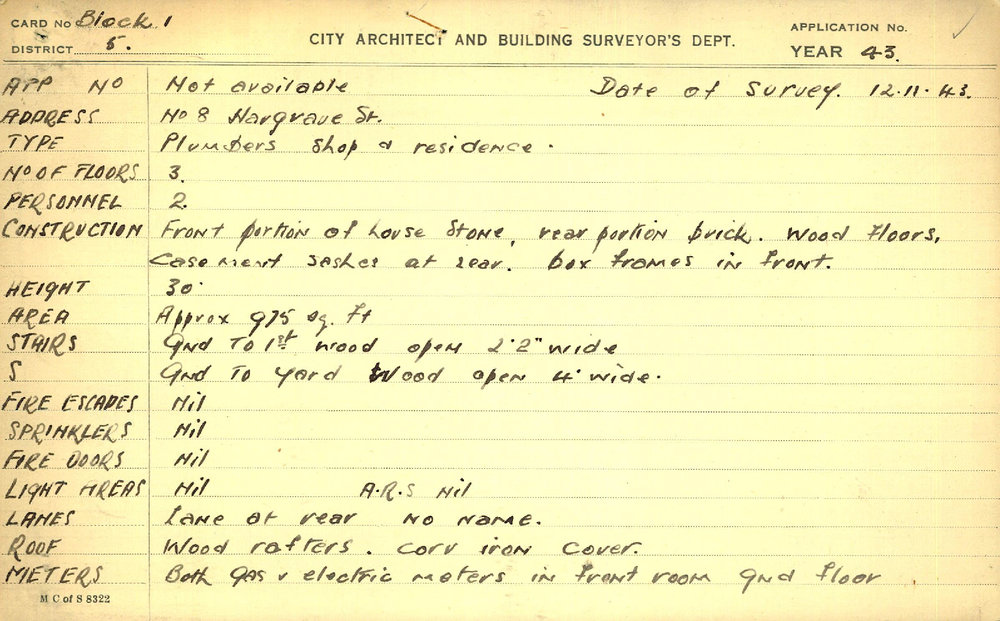 CARD No Block 1
DISTRICT 5.
CITY ARCHITECT AND BUILDING SURVEYOR'S DEPT.
APPLICATION No.
YEAR 43.
APP NO Not available Date of Survey. 12.11.43.
ADDRESS No 8 Hargrave St.
TYPE Plumbers Shop & residence.
No OF FLOORS 3.
PERSONNEL 2.
CONSTRUCTION Front portion of house Stone, rear portion brick. Wood floors,
Casement sashes at rear. box frames in front.
HEIGHT 30'
AREA Approx 975 sq. Ft
STAIRS Gnd To 1st wood open 2'2" wide
S Gnd To Yard Wood open 4' wide.
FIRE ESCAPES Nil
SPRINKLERS Nil
FIRE DOORS Nil
LIGHT AREAS Nil A.R.S Nil
LANES Lane at rear No name.
ROOF Wood rafters. Corr iron cover.
METERS Both Gas & electric meters in front room gnd floor
M C of S 8322